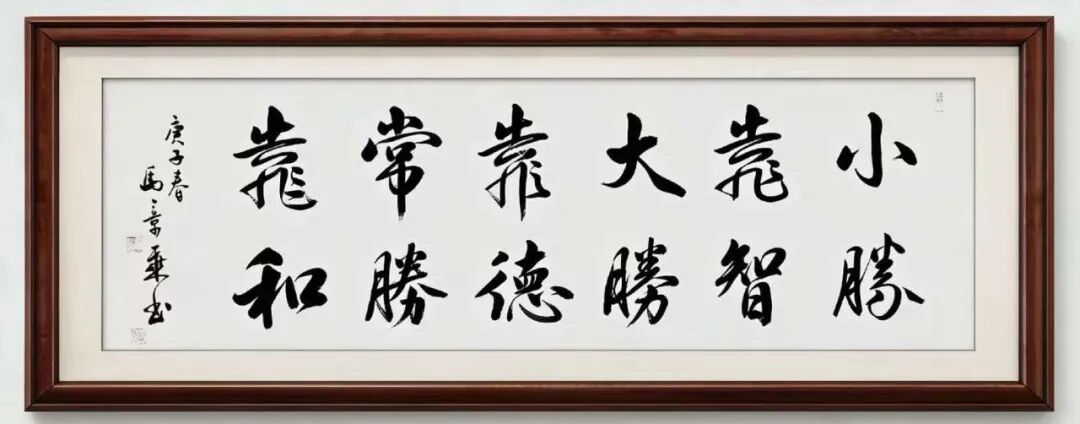 小勝
靠智
大勝
靠德
常勝
靠和
庚子春
馬章乘书